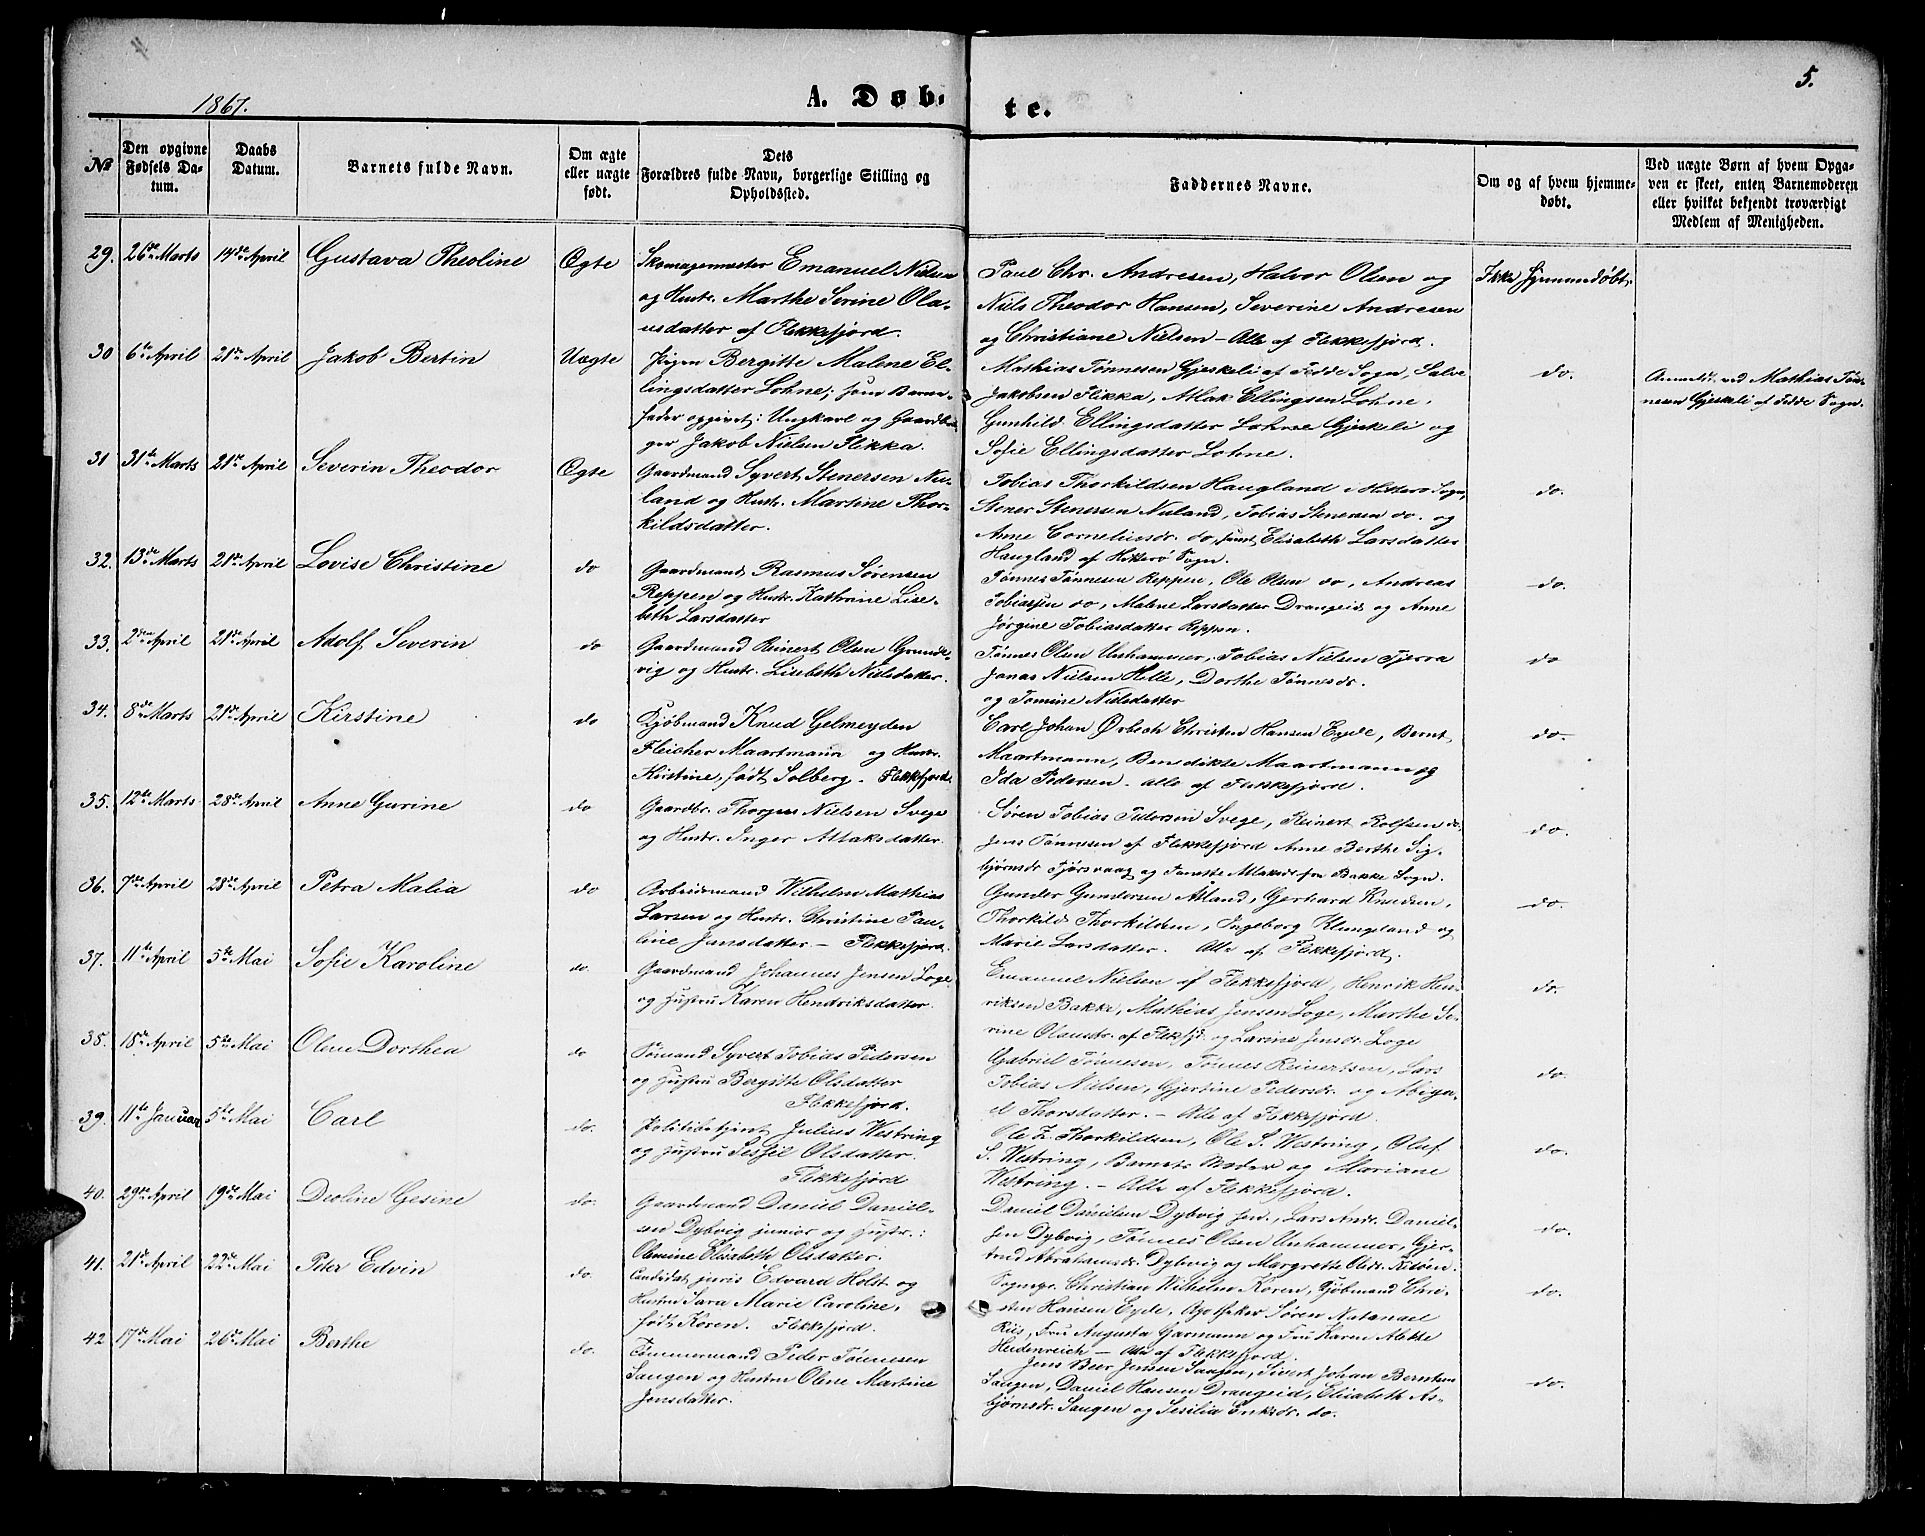 1867.
A. Døb-
te.
5.
№
Den opgivne Fødsels Da-tum.
Daabs Datum.
Barnets fulde Navn.
Om ægte eller uægte født.
Dets Forældres fulde Navn, borgerlige Stilling og Opholdssted.
Faddernes Navne.
Om og af hvem hjemme-døbt.
Ved uægte Børn af hvem Opga-ven er skeet, enten Barnemoderen eller hvilket bekjendt troværdigt Medlem af Menigheden.
29. 26de Marts 14de April Gustava Theoline Ægte
Skomagermester Emanuel Nielsen
og Hustr. Marthe Serine Ola-
usdatter af Flekkefjord.
Paul Chr. Andresen, Halvor Olsen og
Niels Theodor Hansen, Severine Andresen
og Christiane Nielsen – Alle af Flekkefjord.
Ikke hjemmedøbt.
30 6te April 21de April Jakob Bertin Uægte
Pigen Bergitte Malene El-
lingsdatter Lohne; som Barne-
fader opgivet: Ungkarl og Gaardbru-
ger Jakob Nielsen Flikka.
Mathias Tønnesen Gjeskeli af Fedde Sogn, Salve
Jakobsen Flikka, Atlak Ellingsen Lohne,
Gunhild Ellingsdatter Lohne Gjeskeli og
Sofie Ellingsdatter Lohne.
do.
Anmeldt ved Mathias Tøn-
nesen Gjeskeli af Fedde Sogn.
31 31te Marts 21de April Severin Theodor Ægte
Gaardmand Syvert Stenersen Nu-
land og Hustr. Martine Thor-
kildsdatter.
Tobias Thorkildsen Haugland i Hitterø Sogn,
Stener Stenersen Nuland, Tobias Stenersen do. og
Anne Corneliusdr. do, samt Elisabeth Larsdatter
Haugland af Hitterø Sogn.
do.
32. 13de Marts 21de April Lovise Christine do
Gaardmand Rasmus Sørensen
Reppen og Hustr. Kathrine Lise-
beth Larsdatter
Tønnes Tønnesen Reppen, Ole Olsen do, Andreas
Tobiassen do, Malene Larsdatter Drangeid og Anne
Jørgine Tobiasdatter Reppen.
do.
33. 2den April 21de April Adolf Severin do
Gaardmand Reinert Olsen Grunde-
vig og Hustr. Lisebeth Nielsdatter.
Tønnes Olsen Unhammer, Tobias Nielsen Tjerra
Jonas Nielsen Helle, Dorthe Tønnesdr.
og Tomine Nielsdatter
do
34. 8de Marts 21de April Kirstine do
Kjøbmand Knud Gelmeyden
Fleicher Maartmann og Hustr.
Kirstine, født Solberg. Flekkefjord.
Carl Johan Ørbech Christen Hansen Eyde, Bernt
Maartmann, Bendikte Maartmann og
Ida Pedersen. alle af Flekkefjord.
do.
35. 12te Marts 28de April Anne Gurine do
Gaardbr. Thorger Nielsen Svege
og Hustr. Inger Atlaksdatter.
Søren Tobias Pedersen Svege, Reinert Rolfsen do,
Jens Tønnesen af Flekkefjord Anne Berthe Sig-
bjørnsdr. Fjørsvaag og Tonette Atlaksdr. fra Bakke Sogn.
do.
36. 7de April 28de April Petra Malia do
Arbeidsmand Wilhelm Mathias
Larsen og Hustr. Christine Pau-
line Jensdatter – Flekkefjord.
Gunder Gundersen Aaland, Gerhard Knudsen,
Thorkild Thorkildsen, Ingeborg Klungland og
Marie Larsdatter. Alle af Flekkefjord.
do.
37. 11te April 5te Mai Sofie Karoline do.
Gaardmand Johannes Jensen Loge
og Hustru Karen Hendriksdatter.
Emanuel Nielsen af Flekkefjord, Henrik Hen-
riksen Bakke, Mathias Jensen Loge, Marthe Se-
rine Olausdr. af Flekkfjd. og Larine Jensdr. Loge
do.
38. 18de April 5te Mai Olene Dorthea do
Sømand Syvert Tobias Pedersen
og Hustru Bergitte Olsdatter
Flekkefjord.
Gabriel Tønnesen, Tønnes Reinertsen, Lars
Tobias Nielsen, Gjertine Pedersdr. og Abiga-
el Thorsdatter. – Alle af Flekkefjord.
do.
39. 11te Januar 5te Mai Carl do.
Politibetjent Julius Westring
og Hustru Sessel Olsdatter.
Flekkefjord
Ole Z. Thorkildsen, Ole S. Westring, Oluf
S. Westring, Barnets Moder og Mariane
Westring. – Alle af Flekkefjord.
do.
40. 29de April 19de Mai Deoline Gesine do.
Gaardmand Daniel Daniel-
sen Dybvig junior og Hustr.:
Olemine Elisabeth Olsdatter.
Daniel Danielsen Dybvig sen., Lars Andr. Daniel-
sen Dybvig, Tønnes Olsen Unhammer, Gjer-
trud Abrahamsdr. Dybvig og Margrethe Olsdr. Nisøen.
do.
41. 21de April 22de Mai Peter Edvin do.
Candidat juris Edvard Holst og
Hustru Sara Marie Caroline,
født Koren. Flekkefjord.
Sognepr. Christian Wilhelm Koren, Kjøbmand Chri-
sten Hansen Eyde, Apotheker Søren Natanael
Riis, Fru Augusta Garmann og Fru Karen Alette
Heidenreich – Alle af Flekkefjord.
do.
42 17de Mai 26de Mai Berthe do.
Tømmermand Peder Tønnesen
Saugen og Hustru Olene Martine
Jensdatter.
Jens Beer Jensen Saugen, Sivert Johan Berntsen
Saugen, Daniel Hansen Drangeid, Elisabeth As-
bjørnsdr. Saugen og Sesilia Enksdr. do.
do.